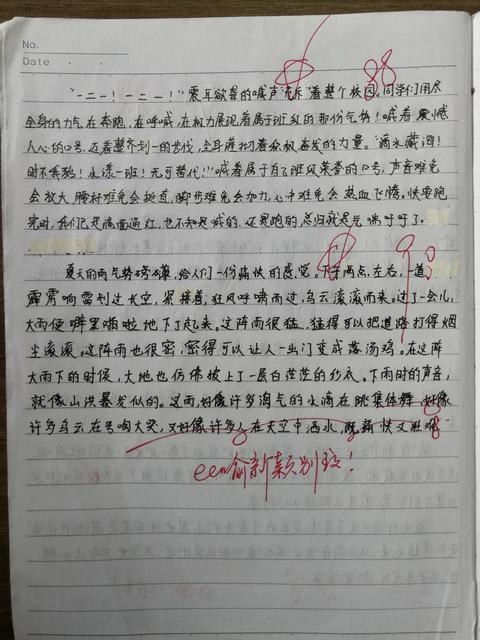 No.
Date
88
"一二一！一二一！"震耳欲聋的喊声"充斥"着整个校园。同学们用尽
全身的力气在奔跑，在呼喊，在极力展现着属于班级的那份气势！喊着震憾
人心的口号，迈着整齐划一的步伐，全身蓬勃着积极奋发的力量。"滴水藏海！
时不我待！永濴一班！无可替代！"喊着属于自己班风荣誉的口号，声音难免
会放大，腰杆难免会挺直，脚步难免会加力，心中难免会热血飞腾。快要跑
完时，我们已是满面通红，也不知是喊的，还是跑的，总归就是气喘吁吁了。
夏天的雨气势磅礴，给人们一份痛快的感觉。下午两点，左右，一道
霹雳响雷划过长空，紧接着，狂风呼啸而过，乌云滚滚而来。过了一会儿，
大雨便噼里啪啦地下了起来。这阵雨很猛，猛得可以把道路打得烟
尘滚滚。这阵雨也很密，密得可以让人一出门变成落汤鸡。在这阵
大雨下的时候，大地也仿佛披上了一层白茫茫的纱衣。下雨时的声音，
就像山洪暴发似的。这雨好像许多淘气的水滴在跳集体舞，好像
许多乌云在号啕大哭，又好像许多人在天空中洒水，既痛快又壮观
比喻新颖别致！